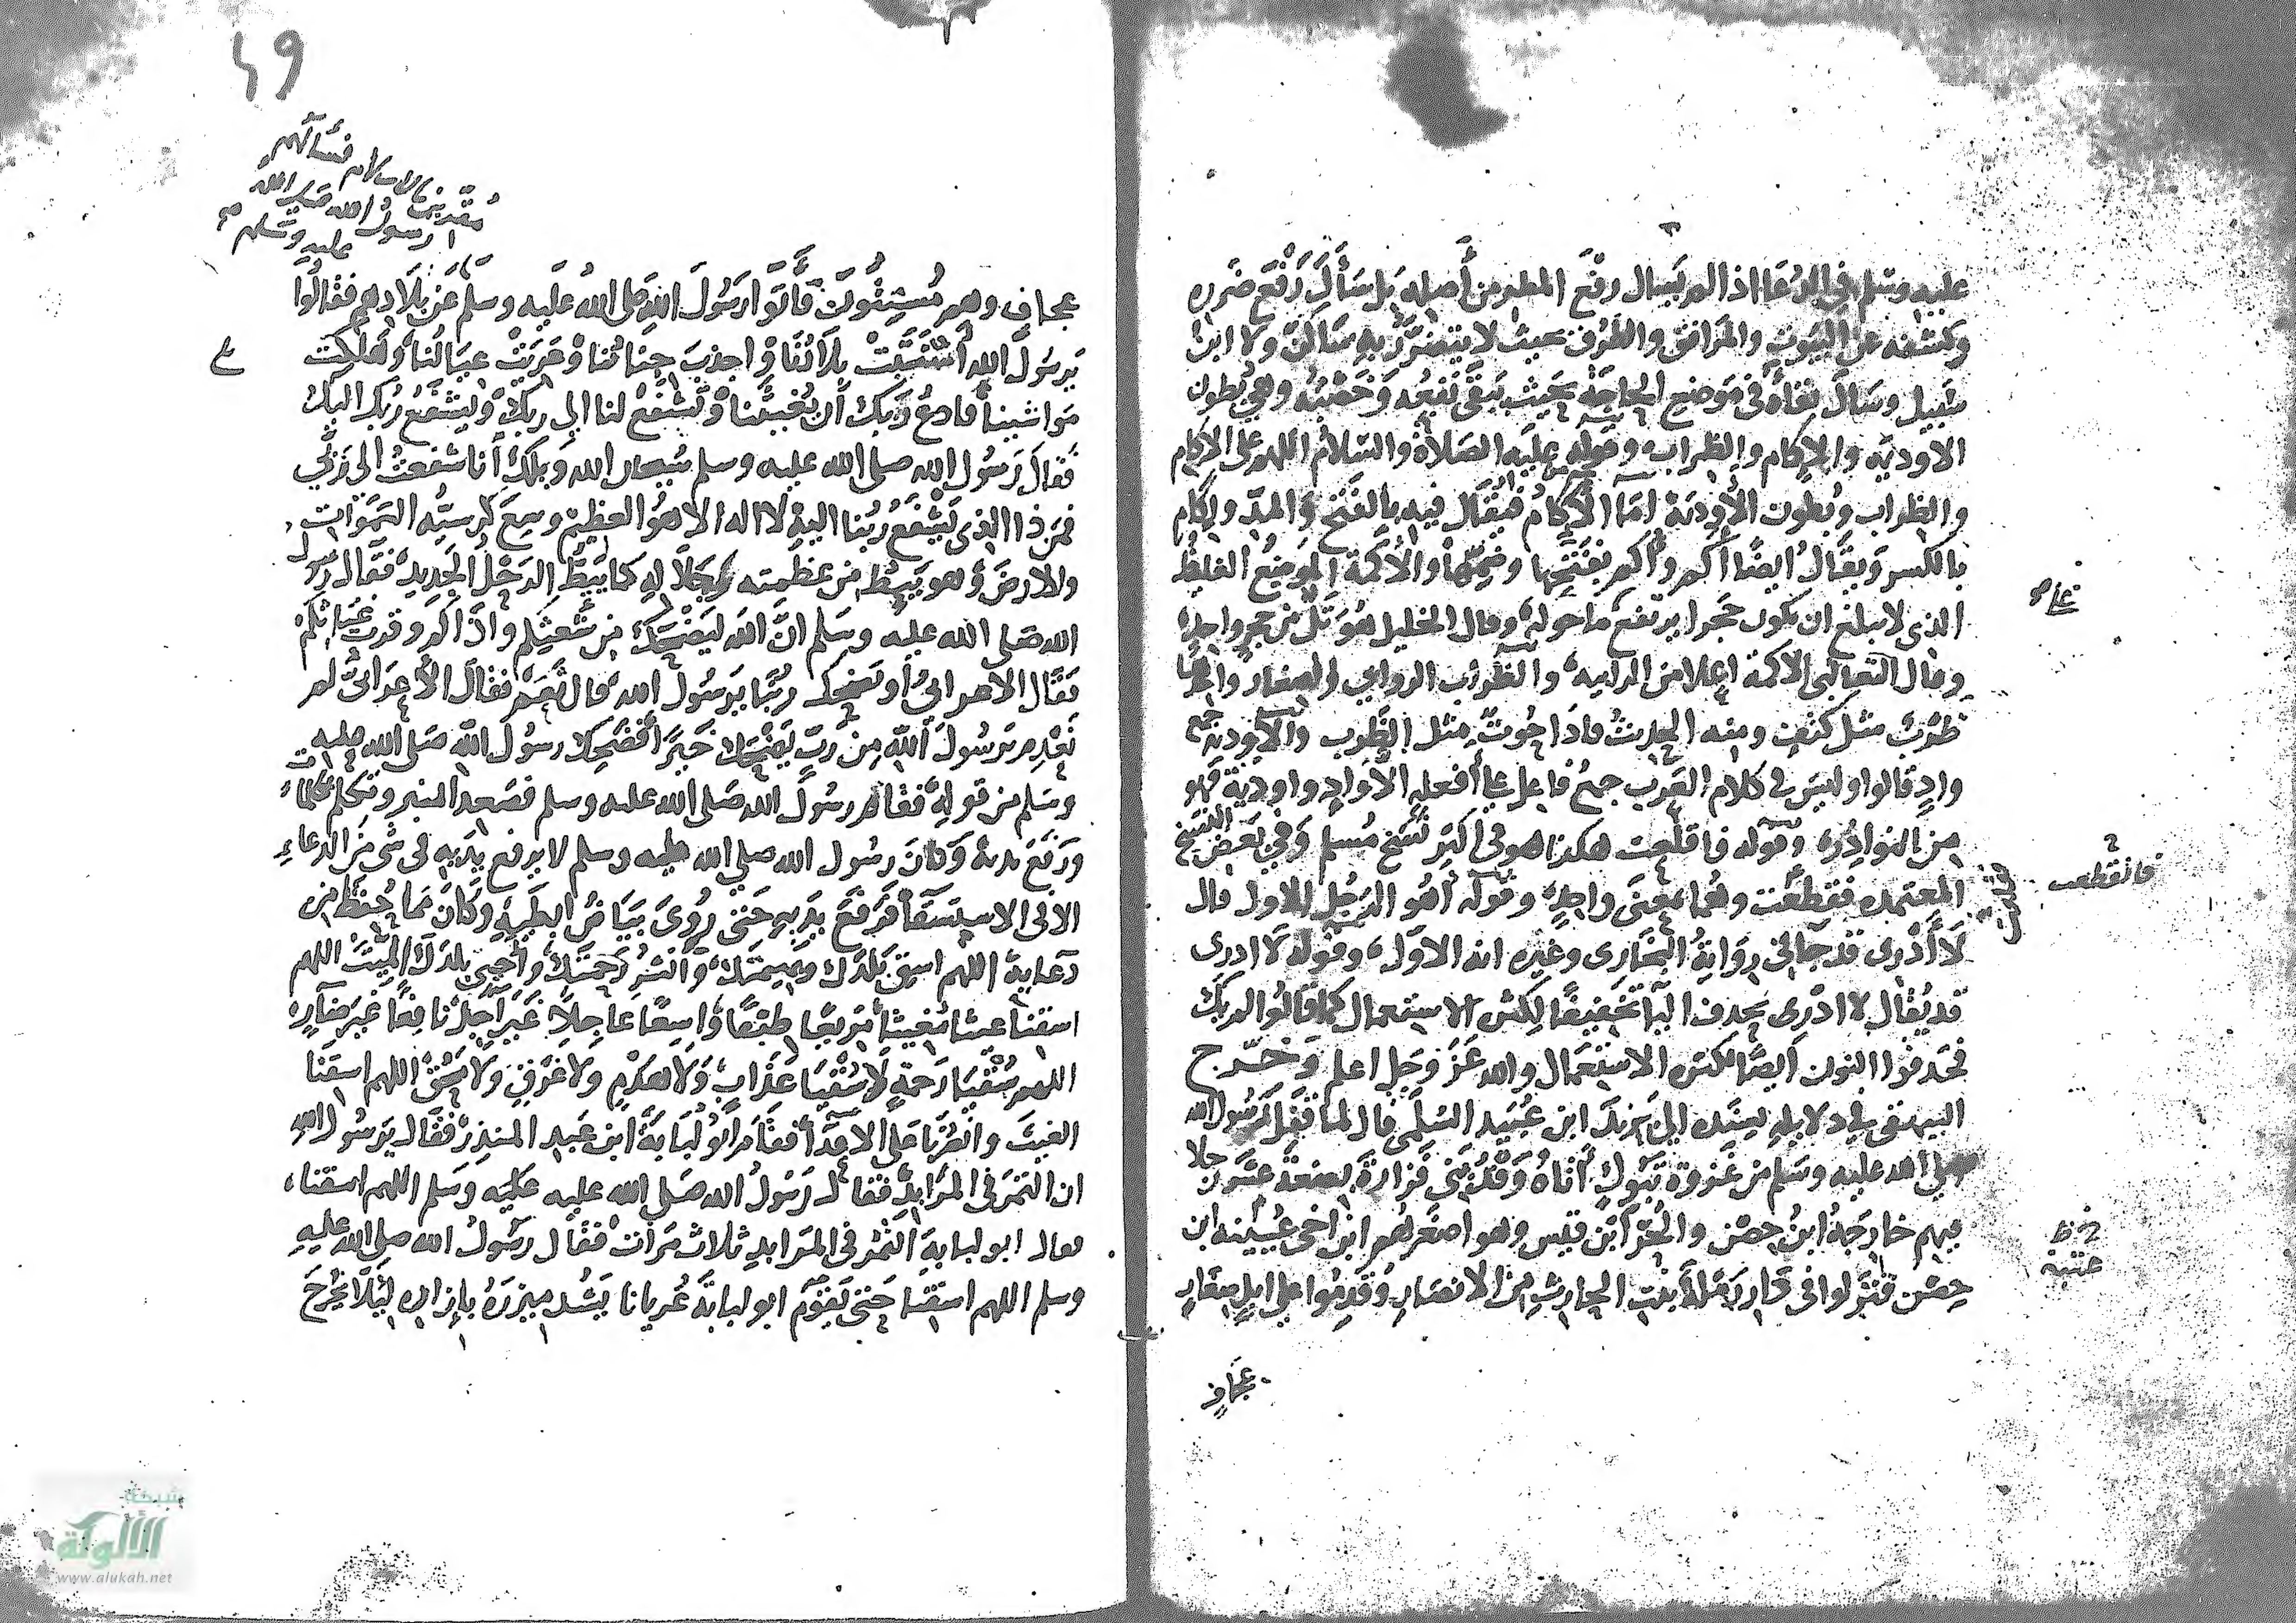 عليه وسلم في الدعا اذ الم يسال رفع المطر من أصله بل سأل رفع ضرره
وكشفه عن البيوت والمرافق والطرق بحيث لا يتضرر به ساكن ولا ابن
سبيل وسال بقاه في مواضع الحاجة بحيث يبقى نفعه وخصبه وهي بطون
الاودية والاكام والظراب وقوله عليه الصلاة والسلام اللهم على الاكام
والظراب وبطون الأودية امّا الآكام فيقال فيه بالفتح والمدّ والإكام
بالكسر ويقال ايضًا أكم وأُكم بفتحها وضمها والأكمة الموضع الغليظ
الذي لا يبلغ ان يكون حجرا يرتفع ما حوله وقال الخليل هو تل من حجر واحد
وقال الثعالبي الاكمة اعلا من الرابيه والظراب الروابي الصغار واحدها
ظرب مثل كتف ومنه الحديث فاذا حوت مثل الظرب والاودية جمع
وادٍ قالوا وليس في كلام العرب جمع فاعل على أفعله الا وادٍ واودية فهو
من النوادر وقوله فاقلعت هكذا هو في اكثر نسخ مسلم وفي بعض النسخ
المعتمده فقطعت وهما بمعنى واحدٍ وقوله أهو الرجل الاول قال
لا أدري قد جا في رواية البخاري وغيره انه الاول وقوله لا ادرى
قد يُقال لا ادرى بحذف اليا تخفيفًا لكثرة الاستعمال كما قالوا لم يك
فحذفوا النون ايضًا لكثرة الاستعمال والله عز وجل اعلم وخرج
البيهقي في دلايله بسنده الى يزيد ابن عبيد السلمي قال لما قفل رسول الله
صلى الله عليه وسلم من غزوة تبوك أتاه وفد بني فزارة بضعة عشر رجلا
فيهم خارجة ابن حصن والحر ابن قيس وهو اصغرهم ابن اخي عيينه ابن
حصن فنزلوا في دار رملة بنت الحارث من الانصار وقدموا على ابل صغار
عجاف
فانقطعت
عجاف وهم مسنتون فأتوا رسول الله صلى الله عليه وسلم عن بلادهم فقالوا
مقرين بالاسلام فسألهم
رسول الله صلى الله
عليه وسلم
يرسول الله أسنتت بلادنا واجدب جنابنا وعريت عيالنا وهلكت
مواشينا فادع ربك أن يغيثنا وتشفع لنا الى ربك ويشفع ربك اليك
فقال رسول الله صلى الله عليه وسلم سبحان الله ويلك أنا شفعت الى ربي
فمن ذا الذي يشفع ربنا اليه لا اله الا هو العظيم وسع كرسيه السموات
والارض وهو يئط من عظمته وجلاله كما يئط الرحل الجديد فقال رسول
الله صلى الله عليه وسلم ان الله ليضحك من شعثكم واذاكم وقرب غياثكم
فقال الاعرابي أو يضحك ربنا يرسول الله قال نعم فقال الأعرابي لم
نعدم يرسول الله من رب يضحك خيرًا فضحك رسول الله صلى الله عليه
وسلم من قوله فقام رسول الله صلى الله عليه وسلم فصعد المنبر وتكلم بكلمات
ورفع يديه وكان رسول الله صلى الله عليه وسلم لا يرفع يديه في شي من الدعاء
الا في الاستسقا فرفع يديه حتى رُؤى بياض ابطيه وكان مما حفظ من
دعايه اللهم اسق بلدك وبهيمتك وانشر رحمتك وأحيي بلدك الميت اللهم
اسقنا غيثا مغيثا مريعا طبقا واسعًا عاجلاً غير آجل نافعًا غير ضآر
اللهم سُقيا رحمة لا سُقيا عذاب ولا هدم ولا غرق ولا محق اللهم اسقنا
الغيث وانصرنا على الاعدآ فقام ابو لبابة ابن عبد المنذر فقال يرسول الله
ان التمر في المرابد فقال رسول الله صلى الله عليه وسلم اللهم اسقنا
فقال ابو لبابة التمر في المرابد ثلاث مرات فقال رسول الله صلى الله عليه
وسلم اللهم اسقنا حتى يقوم ابو لبابة عريانا يشد ميزره بإزاره ليلا يخرج
شبكة
الألوكة
www.alukah.net